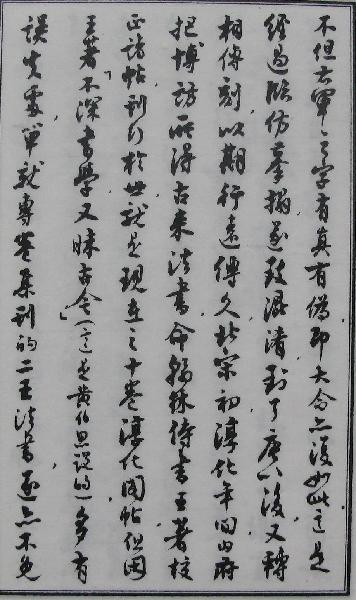 不但右軍之字有真有偽即大令亦復如此這是
經過臨仿摹搨遂致混淆到了唐以後又轉
相傳刻以期行遠傳久北宋初淳化年間内府
把博訪所得古来法書命翰林侍書王著校
正諸帖刊行於世就是現在之十卷淳化閣帖但因
王著「不深書學又昧古今」(這是黃伯思說的)多有
誤失處單就專卷集刊的二王法書遂亦不免